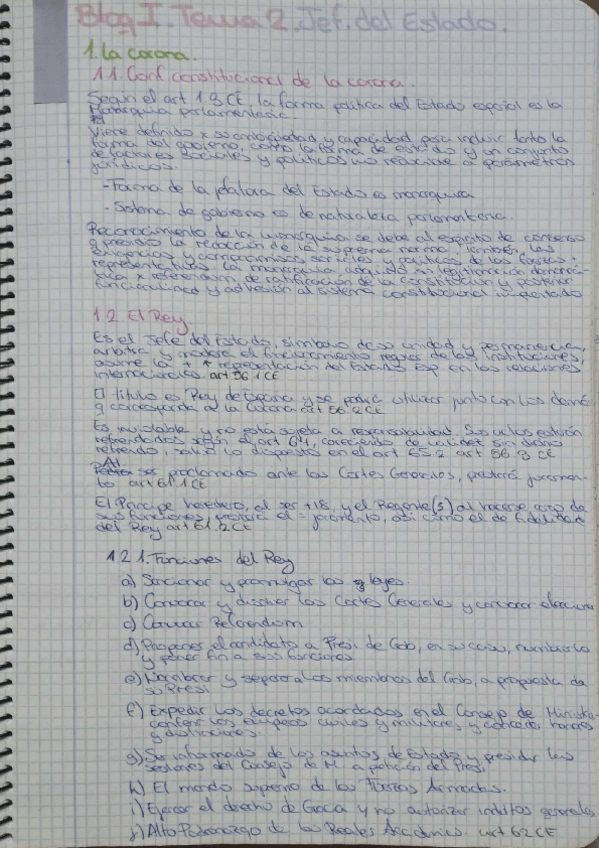 Bloq I. Tema 2. Jef. del Estado.
1. La corona.
1.1. Conf constitucional de la corona.
Según el art 1.3 CE, la forma política del Estado español es la
Monarquía parlamentaria.
Viene definido x su ambigüedad y capacidad para incluir tanto la
forma del gobierno, como la forma de estado y un conjunto
de factores sociales y políticos no reducirse a parámetros
jurídicos.
- Forma de la jefatura del Estado es monarquía
- Sistema de gobierno es de naturaleza parlamentaria.
Reconocimiento de la monarquía se debe al espíritu de consenso
q presidió la redacción de la suprema norma, también, las
exigencias y compromisos sociales y políticos de las fuerzas +
representativas. La monarquía adquirió su legitimación democrá-
tica x referendum, de ratificación de la constitución y posterior
funcionamiento y adhesión al sistema constitucional implantado
1.2 El Rey
Es el Jefe del Estado, símbolo de su unidad y permanencia,
arbitra y modera el funcionamiento regular de las instituciones,
asume la + ↑ representación del Estado Esp en las relaciones
internacionales. art 56.1 CE
El título es Rey de España y se podrá utilizar junto con los demás
q corresponda de la Corona art 56.2 CE
Es inviolable y no está sujeta a responsabilidad. Sus actos estarán
refrendados según el art 64, careciendo de validez sin dicho
refrendo, salvo lo dispuesto en el art 65.2 art 56.3 CE
Al ser proclamado ante las Cortes Generales, prestará juramen-
to art 61.1 CE
El Príncipe heredero, al ser +18, y el Regente(s) al hacerse cargo de
sus funciones, prestará el = juramento, así como el de fidelidad
del Rey art 61.2 CE
1.2.1. Funciones del Rey
a) Sancionar y promulgar las leyes.
b) Convocar y disolver las Cortes Generales y convocar elecciones
c) Convocar Referendum
d) Proponer el candidato a Presi de Gob, en su caso, nombrarlo
y poner fin a sus funciones
e) Nombrar y separar a los miembros del Gob, a propuesta de
su Presi
f) Expedir los decretos acordados en el Consejo de Ministros
conferir los empleos civiles y militares, y conceder honores
y distinciones.
g) Ser informado de los asuntos de Estado y presidir las
sesiones del Consejo de M. a petición del Presi
h) El mando supremo de las Fuerzas Armadas.
i) Ejercer el derecho de Gracia y no autorizar indultos generales
j) Alto Patronazgo de las Reales Academias. art 62 CE